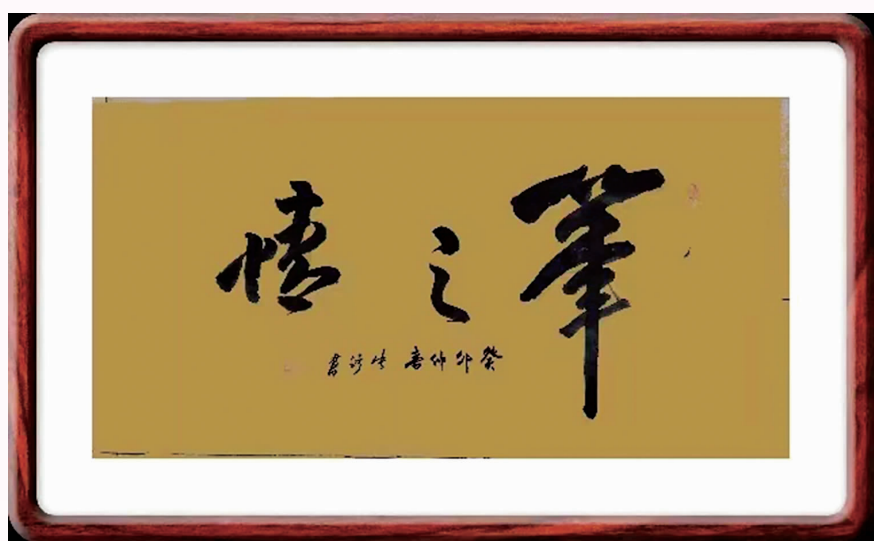 筆之情
癸卯仲春
書